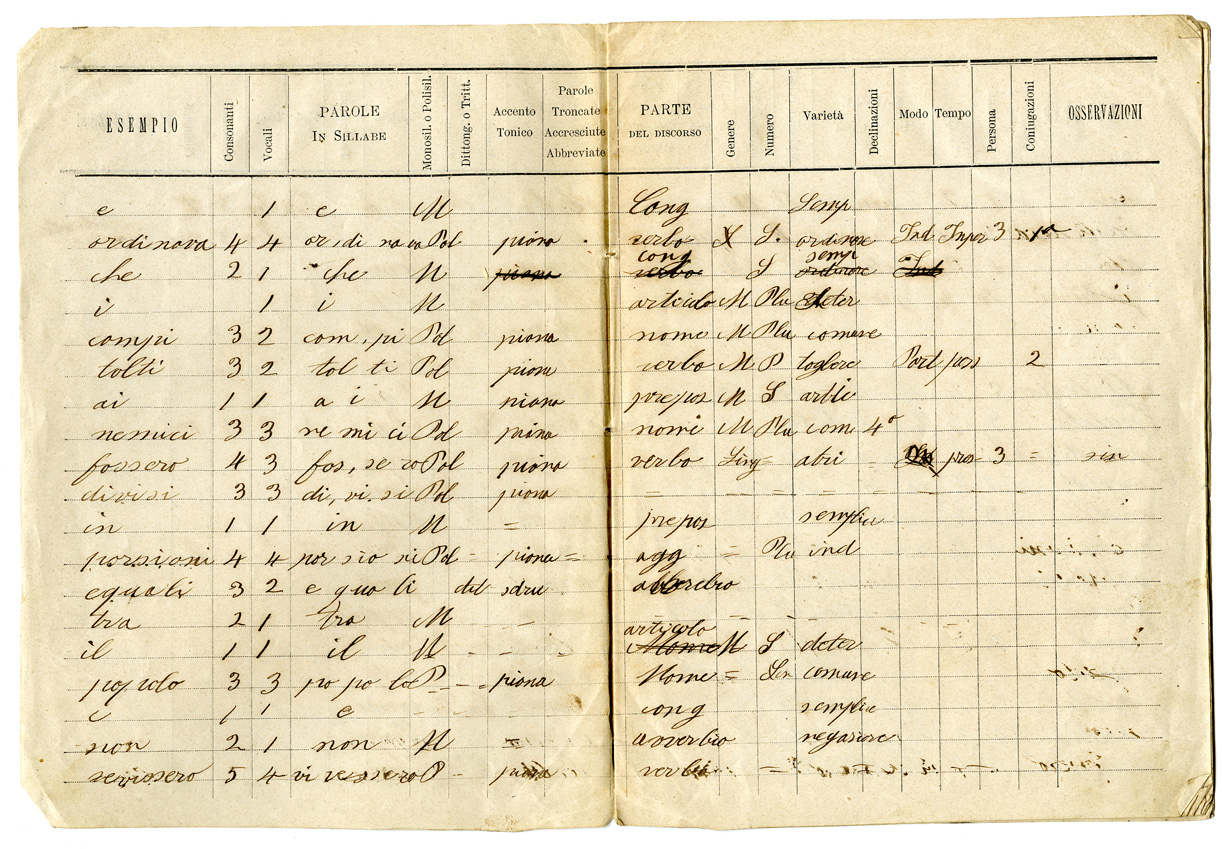 ESEMPIO Consonanti Vocali PAROLE IN SILLABE Monosil. o Polisil. Dittong. o Tritt. Accento Tonico Parole Troncate Accresciute Abbreviate PARTE DEL DISCORSO Genere Numero Varietà Declinazioni Modo Tempo Persona Coniugazioni OSSERVAZIONI
e 1 e M Cong Semp
ordinava 4 4 or di na va Pol piana verbo S. ordinare Ind Imper 3 1a
che 2 1 che M piana cong verbo S semp ordinare Ind
i 1 i M articolo M Plu deter
campi 3 2 cam, pi Pol piana nome M Plu comune
tolti 3 2 tol ti Pol piana verbo M P togliere Part pass 2
ai 1 1 a i M piana prepos M S artic
nemici 3 3 ne mi ci Pol piana nome M Plu com 4°
fossero 4 3 fos, se ro Pol piana verbo Sing = = pres 3 =
divisi 3 3 di, vi, si Pol piana
in 1 1 in M = prepos semplice
porsioni 4 4 por sio ni Pol = piana = agg = Plu ind
equali 3 2 e qua li dit sdru
tra 2 1 tra M
il 1 1 il M articolo Nome M S deter
popolo 3 3 po po lo P piana Nome = Sin comune
e 1 1 e cong semplice
non 2 1 non M = avverbio negasione
5 4 vi vessero P piana verbo